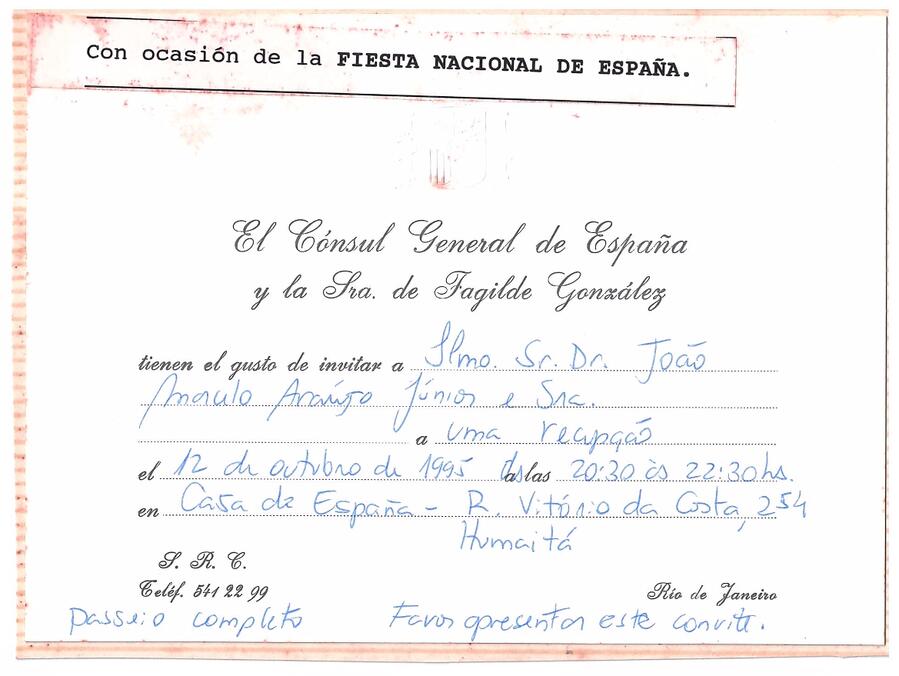 Con ocasión de la FIESTA NACIONAL DE ESPAÑA.
El Cónsul General de España
y la Sra. de Fagilde González
tienen el gusto de invitar a Ilmo. Sr. Dr. João
Marcelo Araújo Júnior e Sra.
a uma recepção
el 12 de outubro de 1995 das 20:30 às 22:30 hs.
en Casa de España - R. Vitório da Costa, 254
Humaitá
S. R. C.
Teléf. 541 22 99
Río de Janeiro
Passeio completo Favor apresentar este convite.